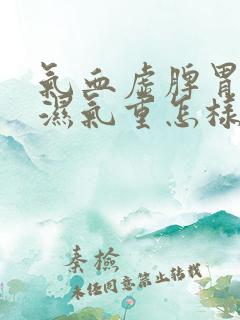 氣血虛脾胃
濕氣重怎樣
秦檢
未经同意禁止转载